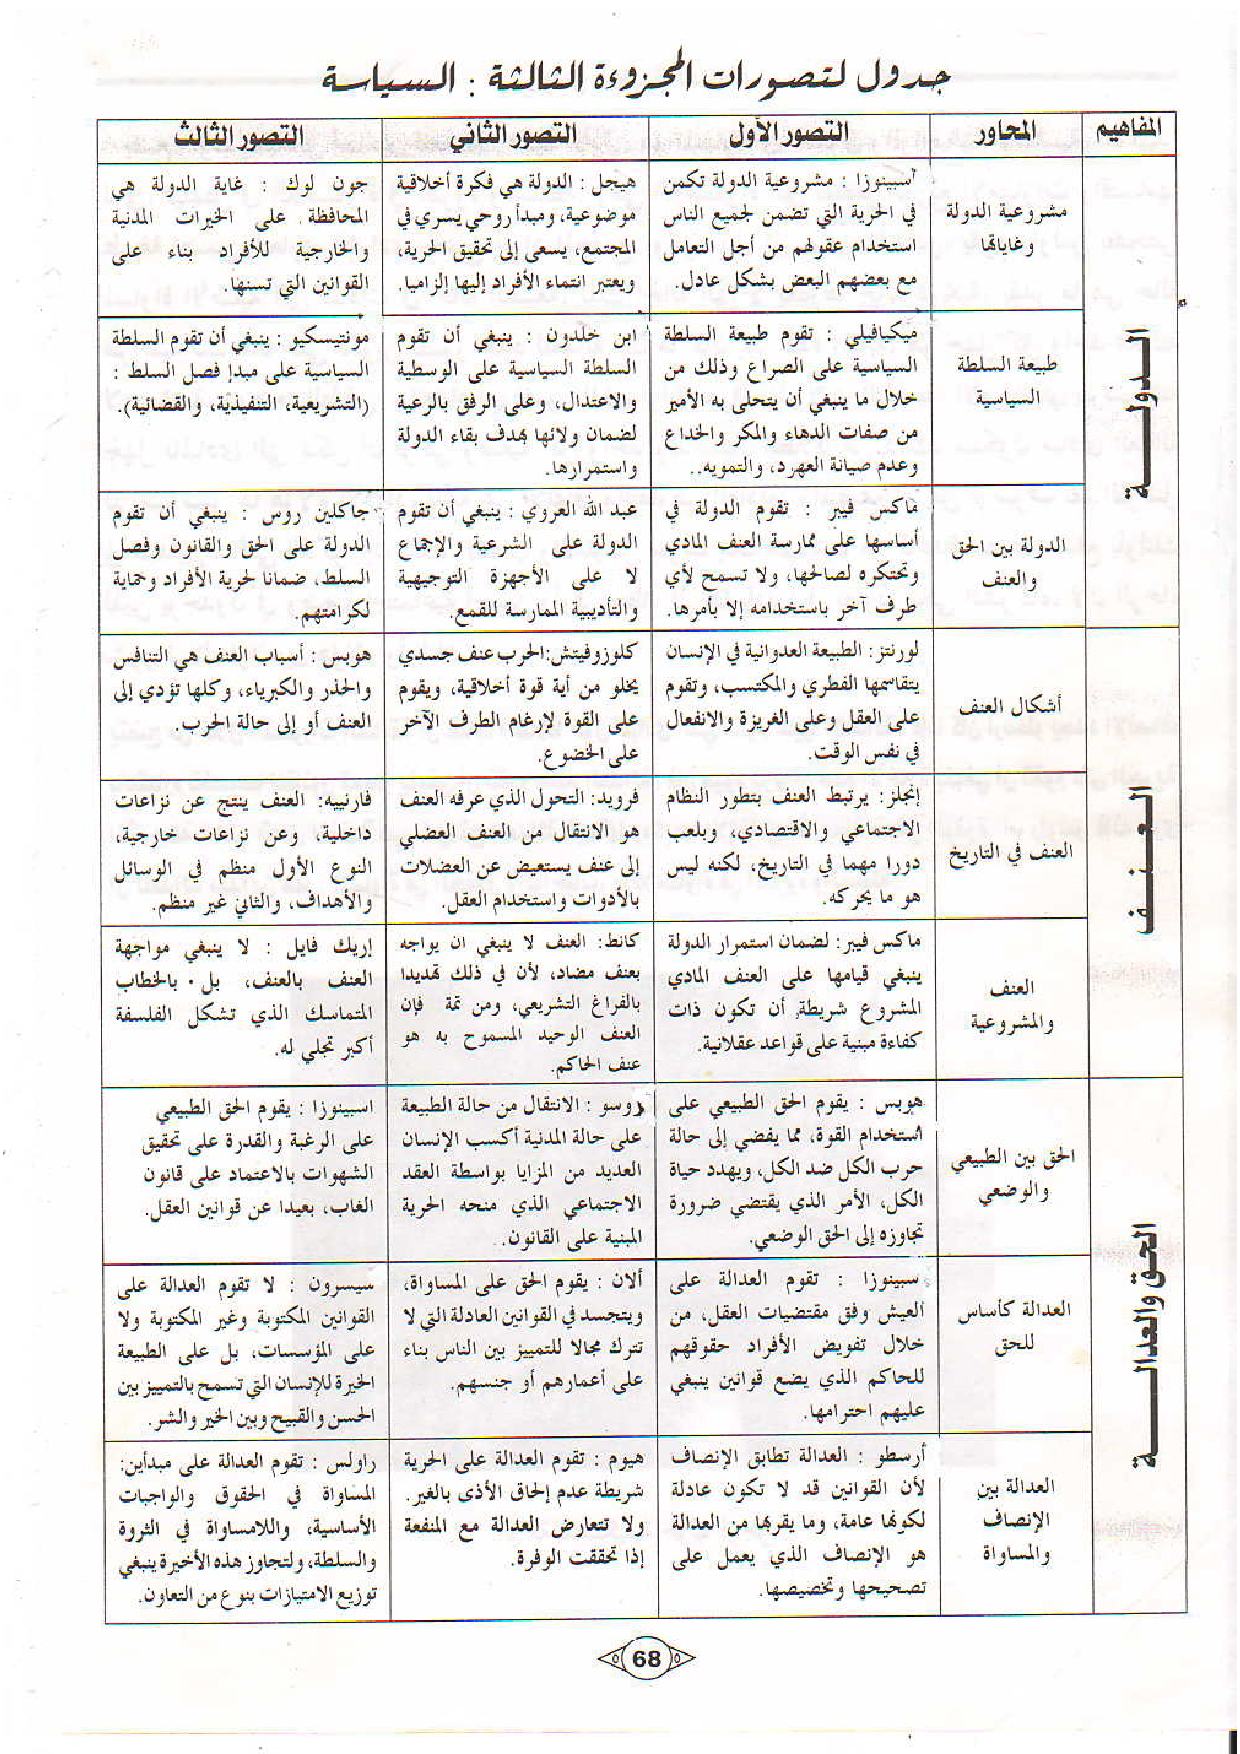 جدول لتصورات المجزوءة الثالثة : السياسة
المفاهيم
المحاور
التصور الأول
التصور الثاني
التصور الثالث
الدولــــة
مشروعية الدولة
وغاياتها
اسبينوزا : مشروعية الدولة تكمن
في الحرية التي تضمن لجميع الناس
استخدام عقولهم من أجل التعامل
مع بعضهم البعض بشكل عادل.
هيجل : الدولة هي فكرة أخلاقية
موضوعية، ومبدأ روحي يسري في
المجتمع، يسعى إلى تحقيق الحرية،
ويعتبر انتماء الأفراد إليها إلزاميا.
جون لوك : غاية الدولة هي
المحافظة على الخيرات المدنية
والخارجية للأفراد بناء على
القوانين التي تسنها.
طبيعة السلطة
السياسية
ميكيافيلي : تقوم طبيعة السلطة
السياسية على الصراع وذلك من
خلال ما ينبغي أن يتحلى به الأمير
من صفات الدهاء والمكر والخداع
وعدم صيانة العهود، والتمويه..
ابن خلدون : ينبغي أن تقوم
السلطة السياسية على الوسطية
والاعتدال، وعلى الرفق بالرعية
لضمان ولائها بهدف بقاء الدولة
واستمرارها.
مونتيسكيو : ينبغي أن تقوم السلطة
السياسية على مبدإ فصل السلط :
(التشريعية، التنفيذية، والقضائية).
الدولة بين الحق
والعنف
ماكس فيبر : تقوم الدولة في
أساسها على ممارسة العنف المادي
وتحتكره لصالحها، ولا تسمح لأي
طرف آخر باستخدامه إلا بأمرها.
عبد الله العروي : ينبغي أن تقوم
الدولة على الشرعية والإجماع
لا على الأجهزة التوجيهية
والتأديبية الممارسة للقمع.
جاكلين روس : ينبغي أن تقوم
الدولة على الحق والقانون وفصل
السلط، ضمانا لحرية الأفراد وحماية
لكرامتهم.
العــنــف
أشكال العنف
لورنتز: الطبيعة العدوانية في الإنسان
يتقاسمها الفطري والمكتسب، وتقوم
على العقل وعلى الغريزة والانفعال
في نفس الوقت.
كلوزوفيتش:الحرب عنف جسدي
يخلو من أية قوة أخلاقية، ويقوم
على القوة لإرغام الطرف الآخر
على الخضوع.
هوبس : أسباب العنف هي التنافس
والحذر والكبرياء، وكلها تؤدي إلى
العنف أو إلى حالة الحرب.
العنف في التاريخ
إنجلز: يرتبط العنف بتطور النظام
الاجتماعي والاقتصادي، ويلعب
دورا مهما في التاريخ، لكنه ليس
هو ما يحركه.
فرويد: التحول الذي عرفه العنف
هو الانتقال من العنف العضلي
إلى عنف يستعيض عن العضلات
بالأدوات واستخدام العقل.
فارنييه: العنف ينتج عن نزاعات
داخلية، وعن نزاعات خارجية،
النوع الأول منظم في الوسائل
والأهداف، والثاني غير منظم.
العنف
والمشروعية
ماكس فيبر: لضمان استمرار الدولة
ينبغي قيامها على العنف المادي
المشروع شريطة أن تكون ذات
كفاءة مبنية على قواعد عقلانية.
كانط: العنف لا ينبغي ان يواجه
بعنف مضاد، لأن في ذلك تهديدا
بالفراغ التشريعي، ومن ثمة فإن
العنف الوحيد المسموح به هو
عنف الحاكم.
إريك فايل : لا ينبغي مواجهة
العنف بالعنف، بل بالخطاب
المتماسك الذي تشكل الفلسفة
أكبر تجلي له.
الحق والعدالــــة
الحق بين الطبيعي
والوضعي
هوبس : يقوم الحق الطبيعي على
استخدام القوة، مما يفضي إلى حالة
حرب الكل ضد الكل، ويهدد حياة
الكل، الأمر الذي يقتضي ضرورة
تجاوزه إلى الحق الوضعي.
روسو : الانتقال من حالة الطبيعة
على حالة المدنية أكسب الإنسان
العديد من المزايا بواسطة العقد
الاجتماعي الذي منحه الحرية
المبنية على القانون.
اسبينوزا : يقوم الحق الطبيعي
على الرغبة والقدرة على تحقيق
الشهوات بالاعتماد على قانون
الغاب، بعيدا عن قوانين العقل.
العدالة كأساس
للحق
سبينوزا : تقوم العدالة على
العيش وفق مقتضيات العقل، من
خلال تفويض الأفراد حقوقهم
للحاكم الذي يضع قوانين ينبغي
عليهم احترامها.
ألان : يقوم الحق على المساواة،
ويتجسد في القوانين العادلة التي لا
تترك مجالا للتمييز بين الناس بناء
على أعمارهم أو جنسهم.
سيسرون : لا تقوم العدالة على
القوانين المكتوبة وغير المكتوبة ولا
على المؤسسات، بل على الطبيعة
الخيرة للإنسان التي تسمح بالتمييز بين
الحسن والقبيح وبين الخير والشر.
العدالة بين
الإنصاف
والمساواة
أرسطو : العدالة تطابق الإنصاف
لأن القوانين قد لا تكون عادلة
لكونها عامة، وما يقربها من العدالة
هو الإنصاف الذي يعمل على
تصحيحها وتخصيصها.
هيوم : تقوم العدالة على الحرية
شريطة عدم إلحاق الأذى بالغير.
ولا تتعارض العدالة مع المنفعة
إذا تحققت الوفرة.
راولس : تقوم العدالة على مبدأين:
المساواة في الحقوق والواجبات
الأساسية، واللامساواة في الثروة
والسلطة، ولتجاوز هذه الأخيرة ينبغي
توزيع الامتيازات بنوع من التعاون.
68